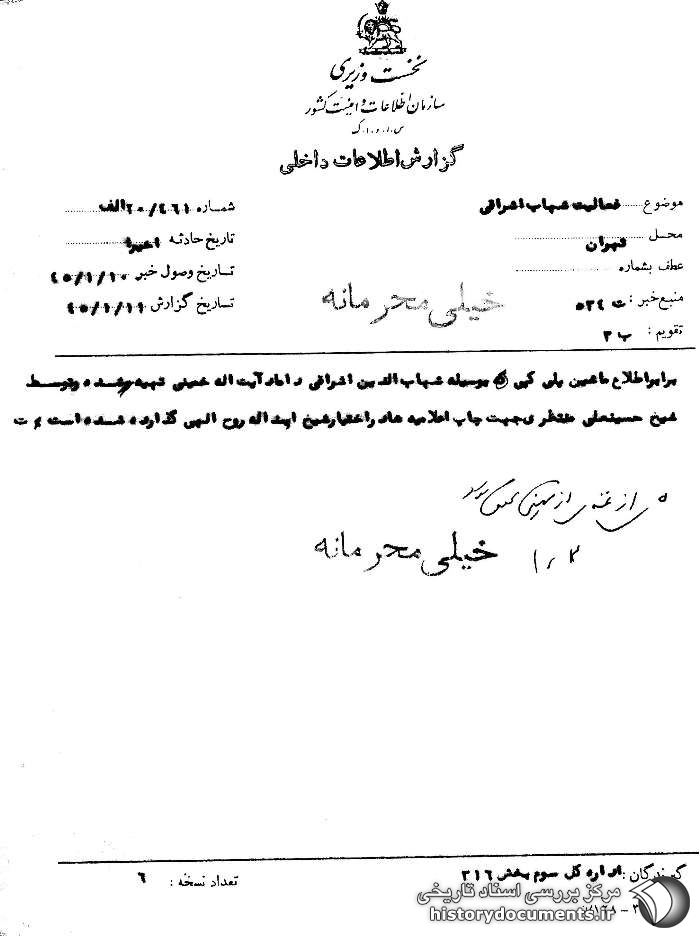 نخست وزیری
سازمان اطلاعات و امنیت کشور
س.ا.و.ا.ک
گزارش اطلاعات داخلی
موضوع فعالیت شهاب اشراقی
شماره ۲۰/۴۶۱الف
محل تهران
تاریخ حادثه اخیرا
عطف بشماره
تاریخ وصول خبر ۴۵/۱/۱۰
منبع خبر : ت ۵۳۴
تاریخ گزارش ۴۵/۱/۱۱
خیلی محرمانه
تقویم : ب ۳
برابر اطلاع ماشین پلی کپی که بوسیله شهاب الدین اشراقی داماد آیت اله خمینی تهیه شده و توسط
شیخ حسینعلی منتظری جهت چاپ اعلامیه ها در اختیار شیخ اله روح الهی گذارده شده است
خیلی محرمانه
گیرندگان : اداره کل سوم بخش ۳۱۶
تعداد نسخه : ۶
مرکز بررسی اسناد تاریخی
historydocuments.ir